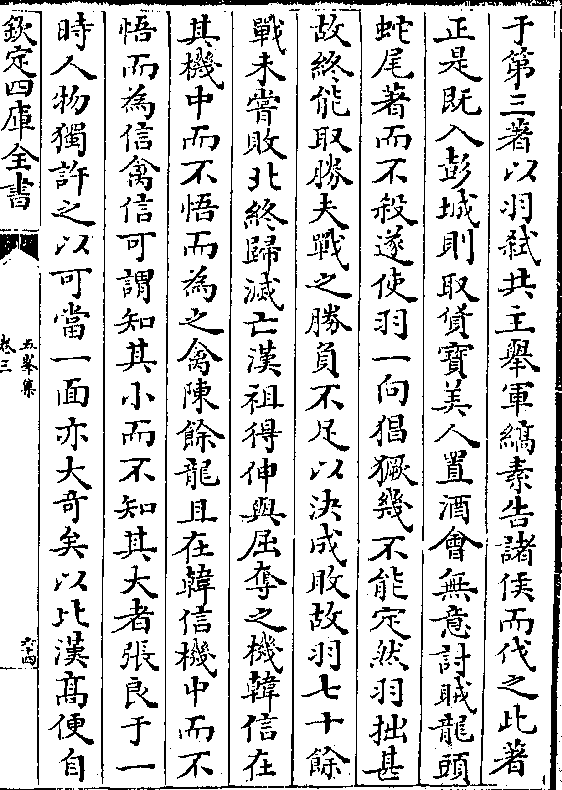 于第三著以羽弑共主舉軍縞素告諸侯而伐之此著
正是既入彭城則取貨寳美人置酒㑹無意討賊龍頭
蛇尾著而不殺遂使羽一向猖獗幾不能定然羽拙甚
故終能取勝夫戰之勝負不足以決成敗故羽七十餘
戰未嘗敗北終歸滅亡漢祖得伸與屈奪之機韓信在
其機中而不悟而為之禽陳餘龍且在韓信機中而不
悟而為信禽信可謂知其小而不知其大者張良于一
時人物獨許之以可當一面亦大奇矣以比漢髙便自
欽定四庫全書
五峯集
卷三
六十四